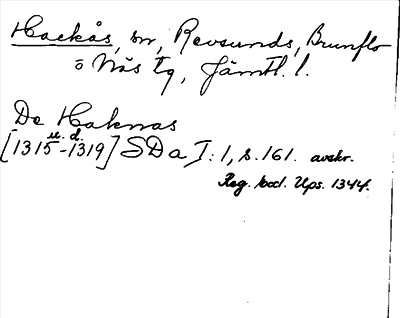 Hackås, sn, Revsunds, Brunflo
o Näs tg, Jämtl. l.
De Haknas
u. d.
[1315-1319] SD a I: 1, s. 161. avskr.
Reg. eccl. Ups. 1344.